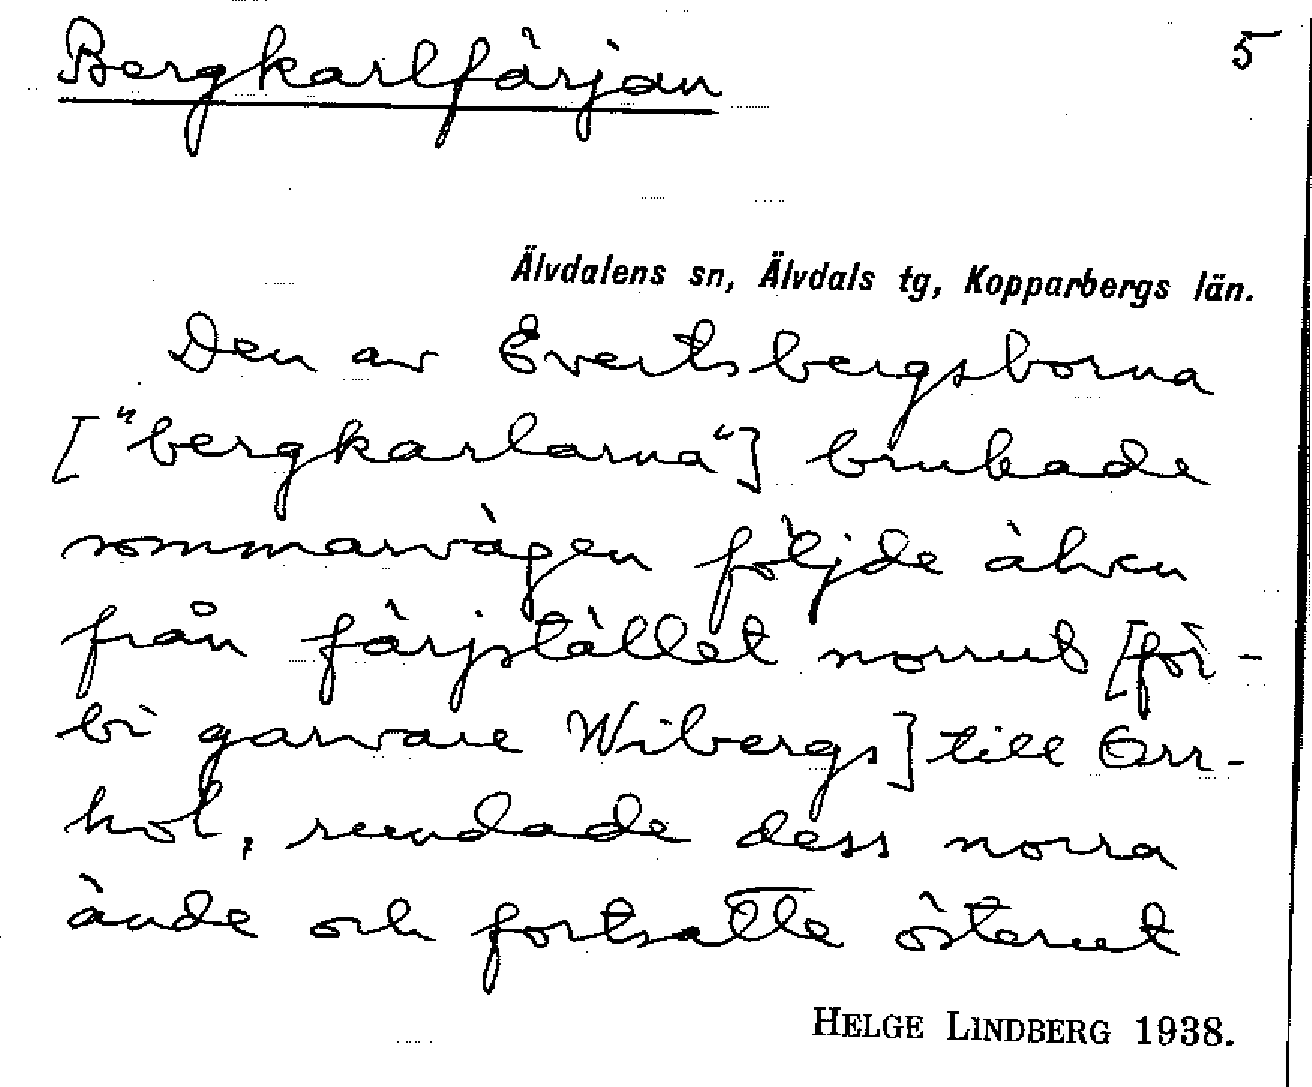 Bergkarlfärjan
5
Älvdalens sn, Älvdals tg, Kopparbergs län.
Den av Evertsbergsborna
["bergkarlarna"] brukade
sommarvägen följde älven
från färjstället norrut [för-
bi garvare Wibergs] till Orr-
hol, rundade dess norra
ände och fortsatte österut
HELGE LINDBERG 1938.